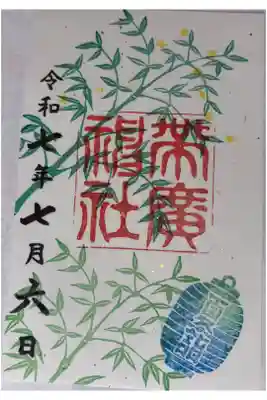 帯廣
神社
夏詣
令和七年七月六日